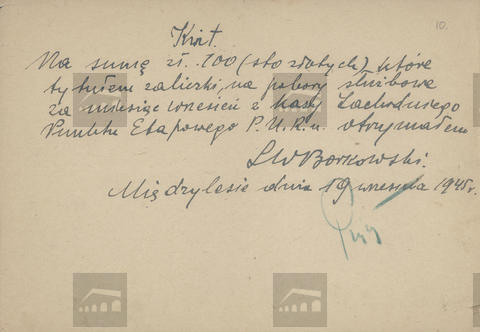 10.
Kwit.
Na sumę zł. 100 (sto złotych) które
tytułem zaliczki, na pobory służbowe
za miesiąc wrzesień z kasy Zachodniego
Punktu Etapowego P.U.R.u. otrzymałem
Borkowski.
Międzylesie dnia 19 września 1945 r.